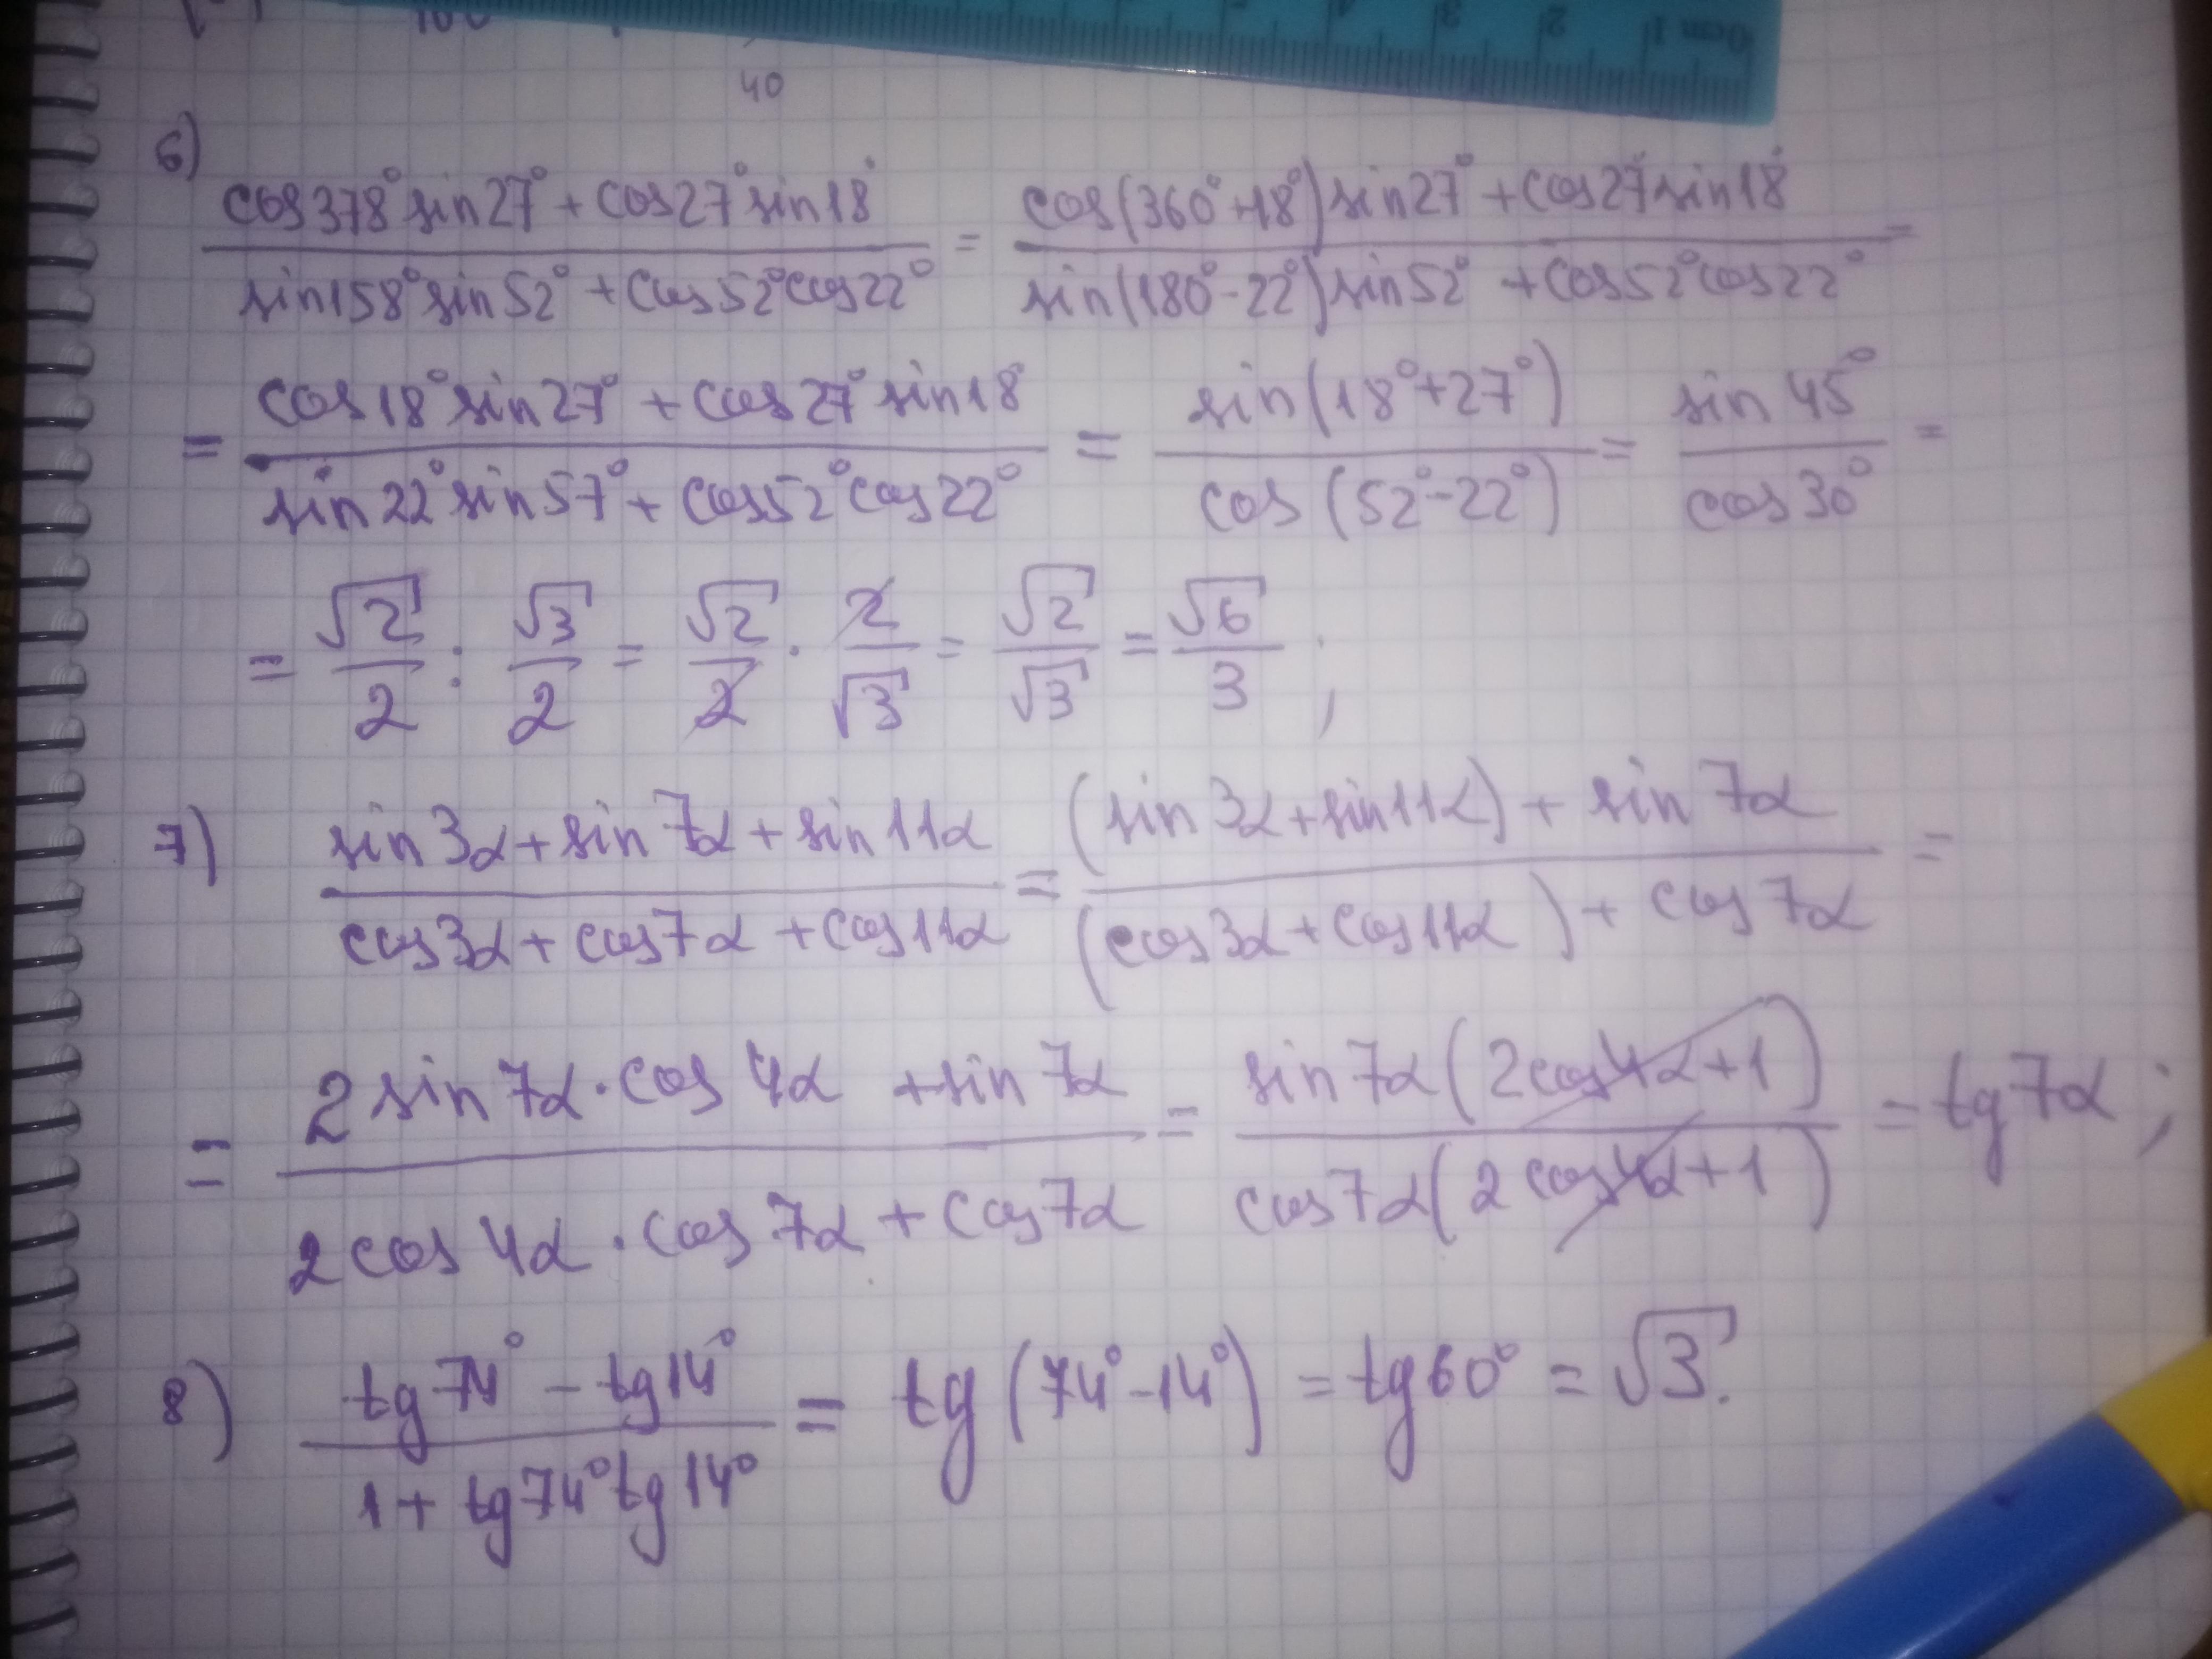 40
6)
cos378° sin27° + cos27° sin18° / sin158° sin52° + cos52° cos22° = cos(360°+18°) sin27° + cos27° sin18° / sin(180°-22°) sin52° + cos52° cos22° =
= cos18° sin27° + cos27° sin18° / sin22° sin57° + cos52° cos22° = sin(18°+27°) / cos(52°-22°) = sin45° / cos30° =
= √2/2 : √3/2 = √2/2 · 2/√3 = √2/√3 = √6/3 ;
7) sin3α + sin7α + sin11α / cos3α + cos7α + cos11α = (sin3α + sin11α) + sin7α / (cos3α + cos11α) + cos7α =
= 2 sin7α · cos4α + sin7α / 2 cos4α · cos7α + cos7α = sin7α (2cos4α+1) / cos7α (2cos4α+1) = tg7α ;
8) tg74° - tg14° / 1 + tg74° tg14° = tg(74°-14°) = tg60° = √3.
0cm 1 2 3 4